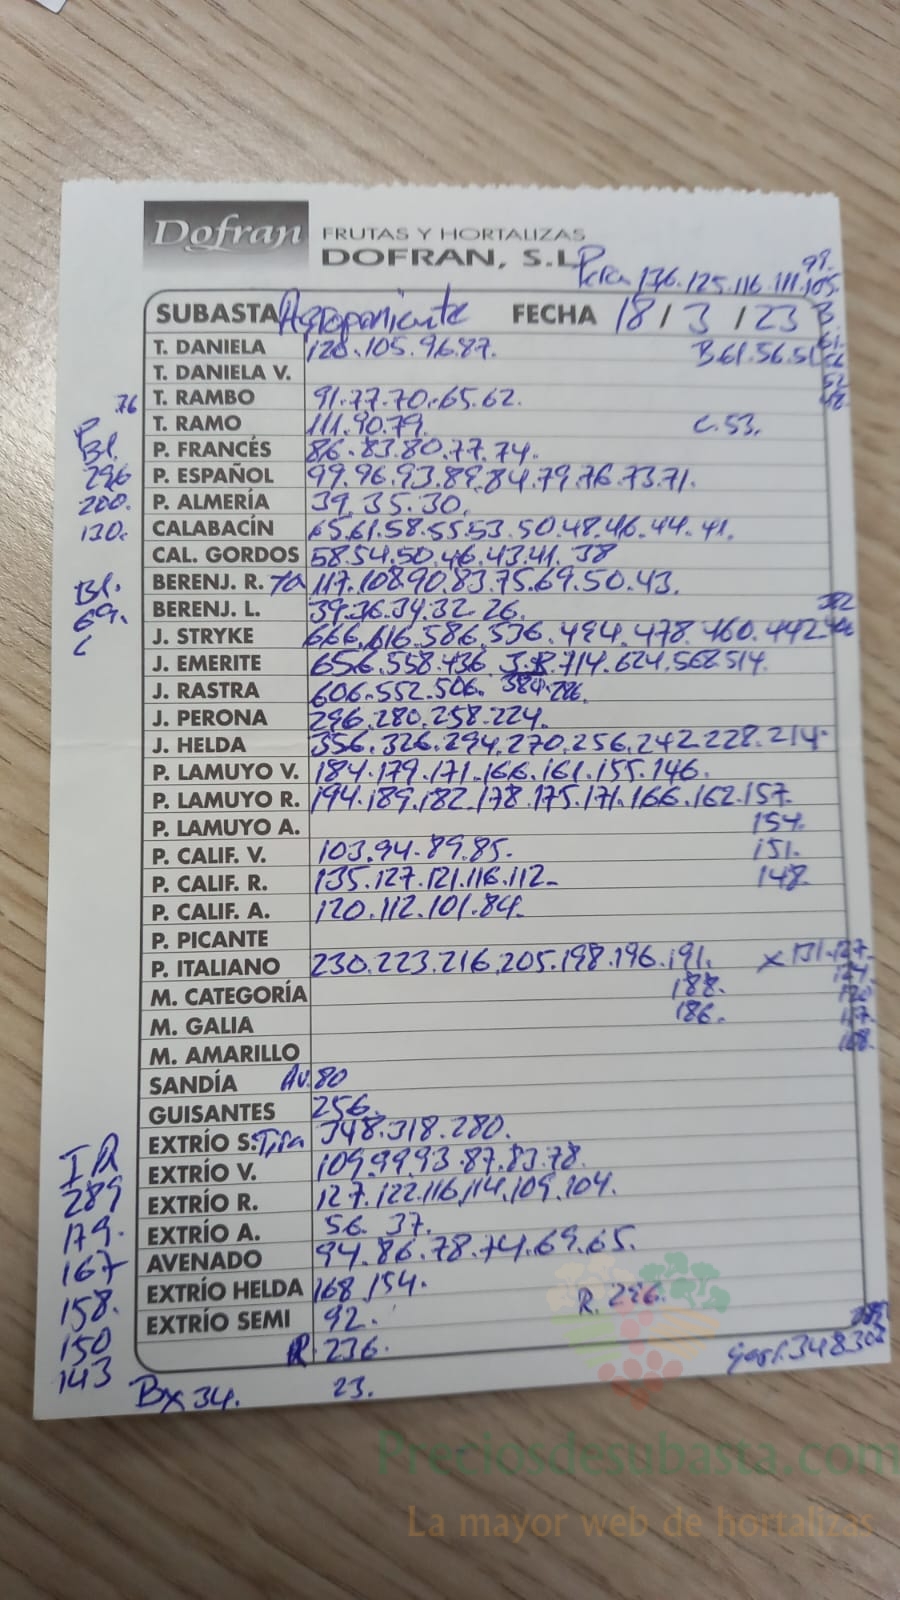 Dofran FRUTAS Y HORTALIZAS
DOFRAN, S.L.
Pera 136.125.116.111.105.
99.
SUBASTA Agroponiente FECHA 18 / 3 / 23 B.
61.
56
52
48.
T. DANIELA 120.105.96.87. B61.56.51
T. DANIELA V.
T. RAMBO 91.77.70.65.62.
76
T. RAMO 111.90.79. C.53.
P. FRANCÉS 86.83.80.77.74.
P. ESPAÑOL 99.96.93.89.84.79.76.73.71.
P. ALMERÍA 39.35.30.
P.
Bl.
296
200.
130.
CALABACÍN 65.61.58.55.53.50.48.46.44.41.
CAL. GORDOS 58.54.50.46.43.41.38
BERENJ. R. 117.108.90.83.75.69.50.43.
BERENJ. L. 39.36.34.32.26.
Bl.
69.
J. STRYKE 666.616.586.536.494.478.460.442
J. EMERITE 656.558.436. S.R.714.624.562.514.
J. RASTRA 606.552.506. 384.286.
J. PERONA 296.280.258.224.
J. HELDA 356.326.294.270.256.242.228.214.
P. LAMUYO V. 184.179.171.166.161.155.146.
P. LAMUYO R. 194.189.182.178.175.171.166.162.157.
P. LAMUYO A. 154.
P. CALIF. V. 103.94.89.85. 151.
P. CALIF. R. 135.127.121.116.112. 148.
P. CALIF. A. 120.112.101.84.
P. PICANTE
P. ITALIANO 230.223.216.205.198.196.191. x 131.127.
124.
120.
117.
108.
M. CATEGORÍA 188.
M. GALIA 186.
M. AMARILLO
SANDÍA Av.80
GUISANTES 256.
EXTRÍO S. 348.318.280.
EXTRÍO V. 109.99.93.87.83.78.
EXTRÍO R. 127.122.116.114.109.104.
EXTRÍO A. 56. 37.
AVENADO 94.86.78.74.69.65.
EXTRÍO HELDA 168.154. R.296.
EXTRÍO SEMI 92.
R 236.
IR
289
179.
167
158.
150
143
Bx 34. 23.
Preciosdesubasta.com
La mayor web de hortalizas